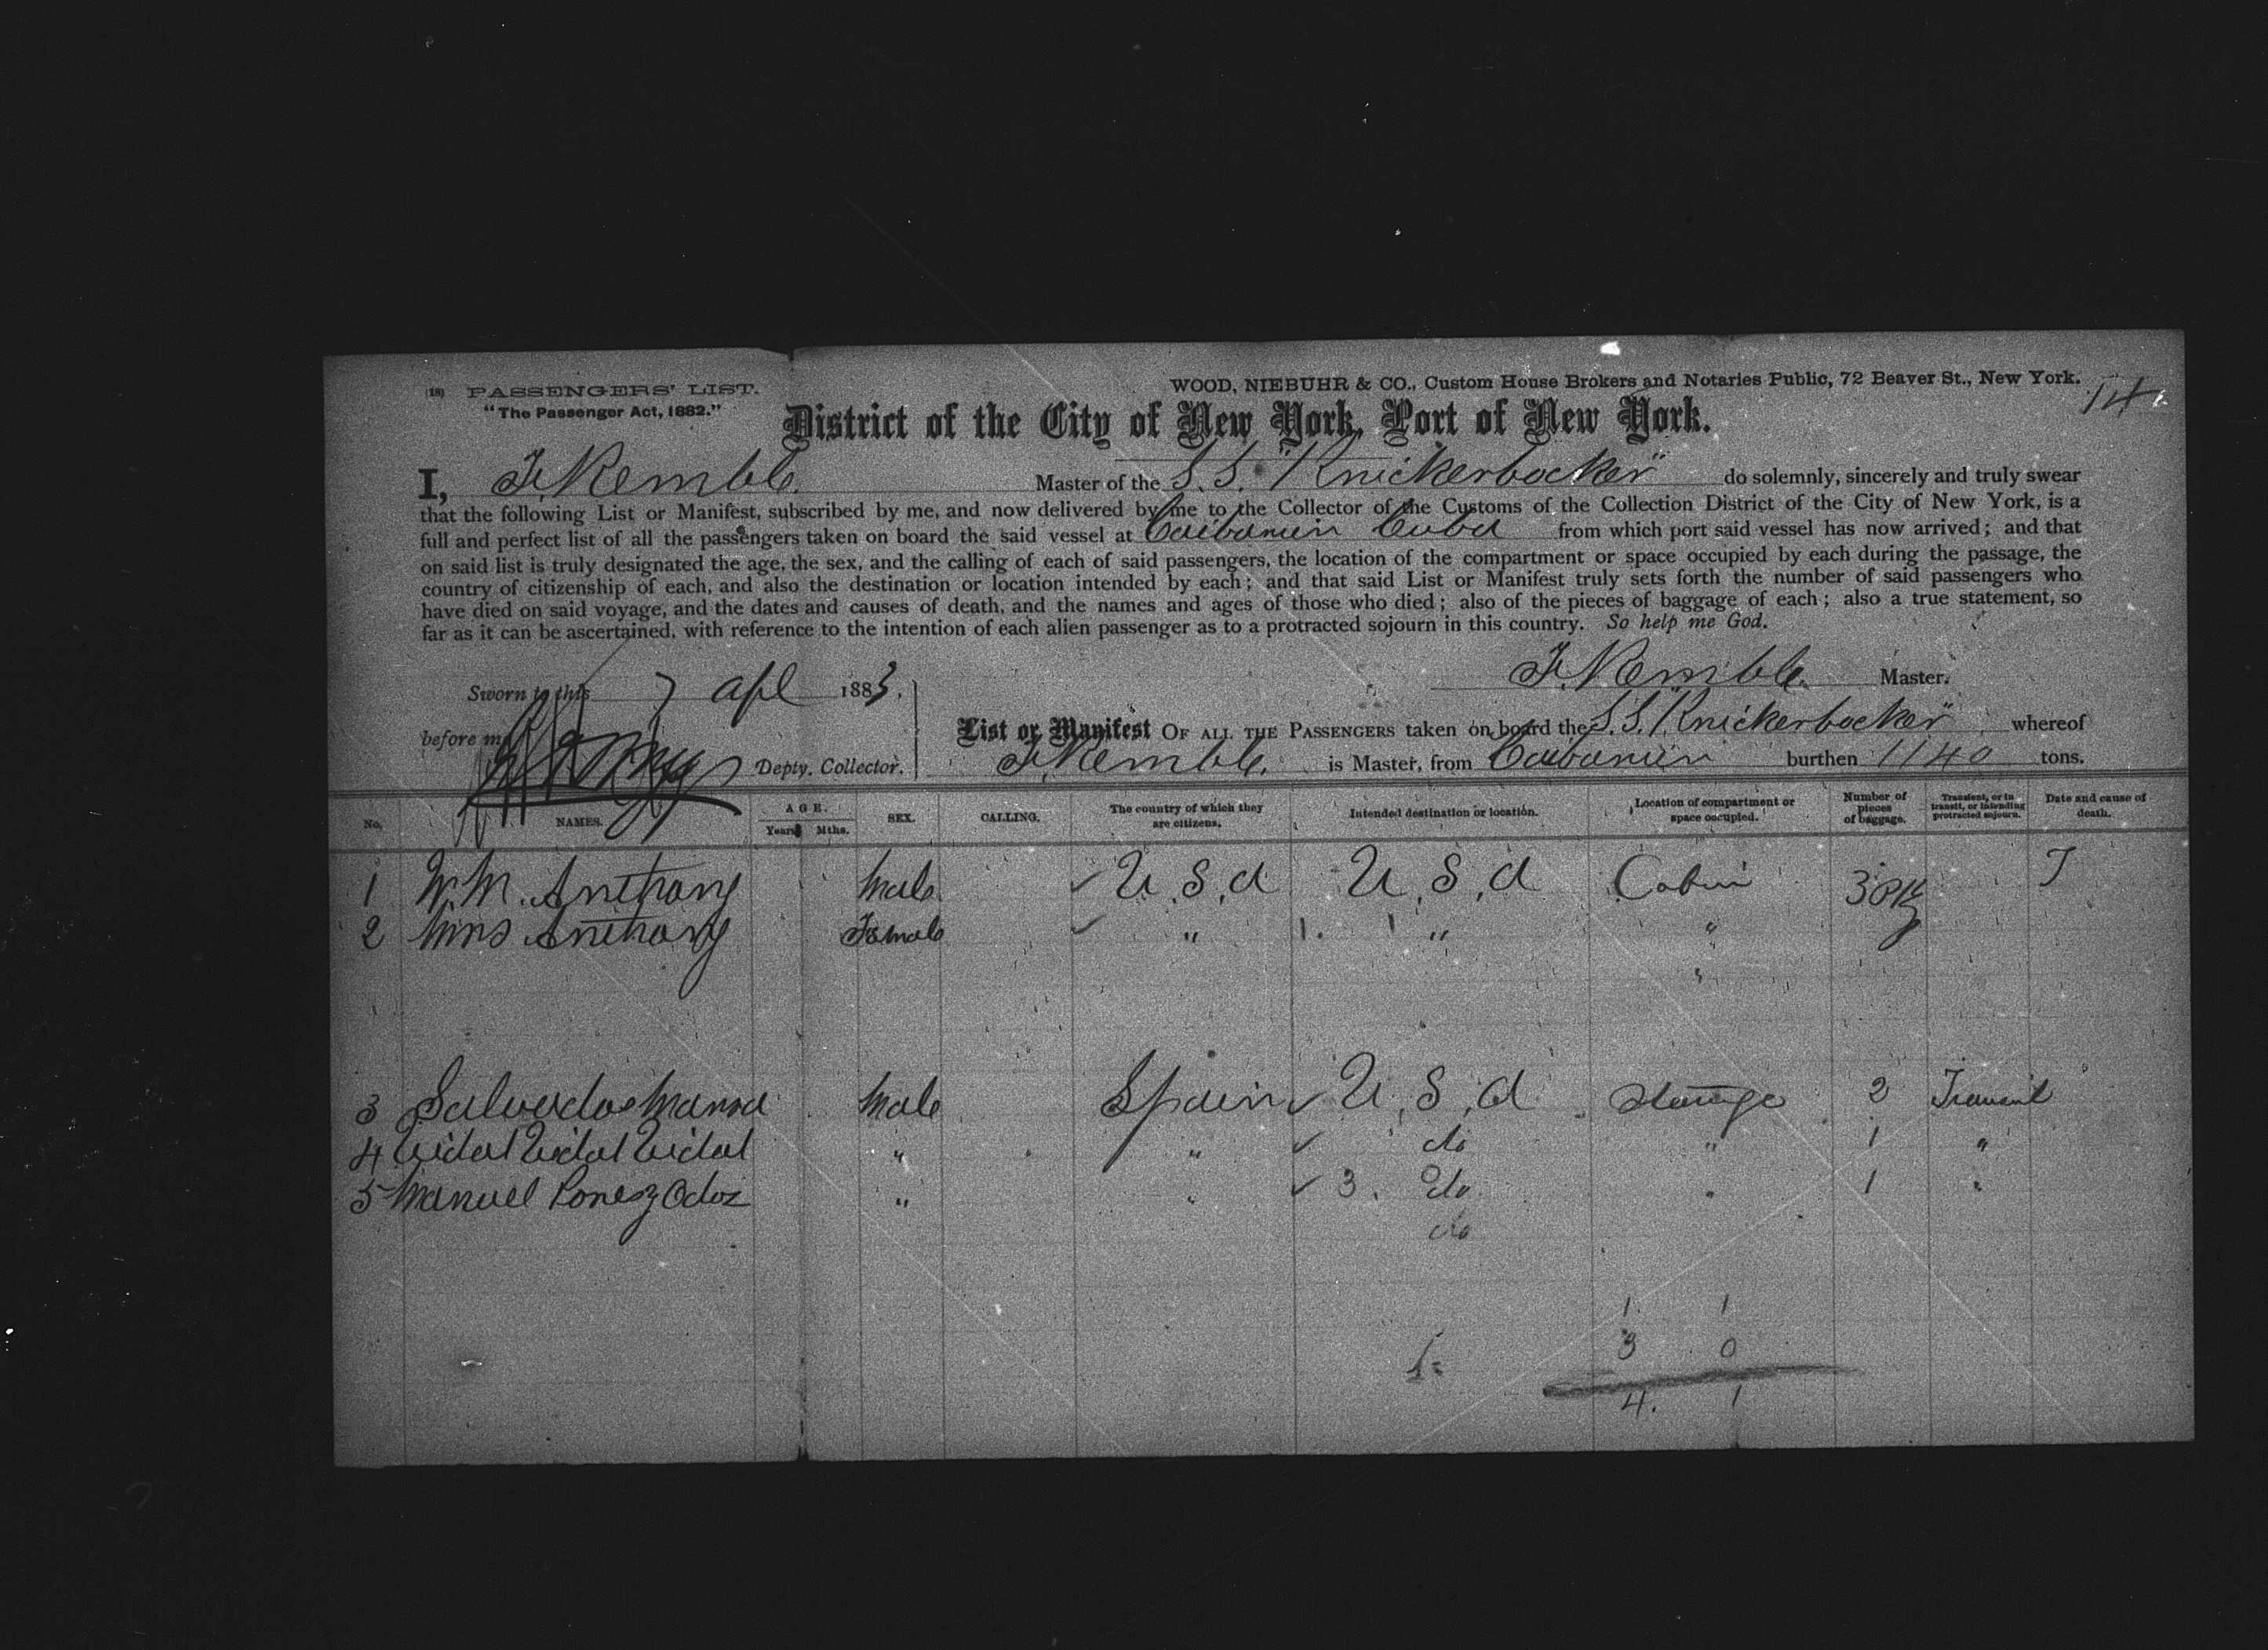 (18) PASSENGERS' LIST.
"The Passenger Act, 1882."
WOOD, NIEBUHR & CO., Custom House Brokers and Notaries Public, 72 Beaver St., New York.
14
District of the City of New York, Port of New York.
I, F. Kemble. Master of the S.S. "Knickerbocker" do solemnly, sincerely and truly swear
that the following List or Manifest, subscribed by me, and now delivered by me to the Collector of the Customs of the Collection District of the City of New York, is a
full and perfect list of all the passengers taken on board the said vessel at Caibarien Cuba from which port said vessel has now arrived; and that
on said list is truly designated the age, the sex, and the calling of each of said passengers, the location of the compartment or space occupied by each during the passage, the
country of citizenship of each, and also the destination or location intended by each; and that said List or Manifest truly sets forth the number of said passengers who
have died on said voyage, and the dates and causes of death, and the names and ages of those who died; also of the pieces of baggage of each; also a true statement, so
far as it can be ascertained, with reference to the intention of each alien passenger as to a protracted sojourn in this country. So help me God.
Sworn to this 7 Apl 1883.
F. Kemble. Master.
before me
Depty. Collector.
List or Manifest OF ALL THE PASSENGERS taken on board the S.S. "Knickerbocker" whereof
F. Kemble. is Master, from Caibarien burthen 1140 tons.
No. NAMES. AGE. Years Mths. SEX. CALLING. The country of which they are citizens. Intended destination or location. Location of compartment or space occupied. Number of pieces of baggage. Transient, or in transit, or intending protracted sojourn. Date and cause of death.
1 Anthony Male U.S.A U.S.A Cabin 3 T
2 Mrs Anthony Female " 1. 1 " "
3 Salvador Male Spain U.S.A Steerage 2 Transit
4 Vidal Vidal Vidal " " do " 1 "
5 Manuel " " 3. do " 1 "
do
1 1
3 0
4. 1